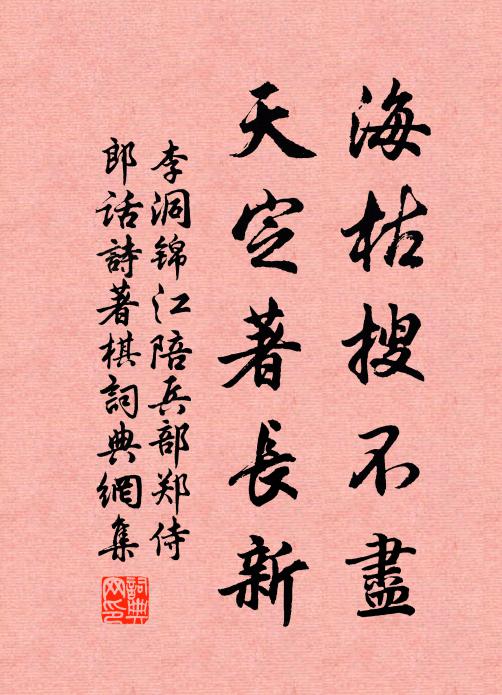 海枯搜不盡
天定著長新
李洞锦江陪兵部郑侍
郎话詩著棋詞典網集
詞典
网印